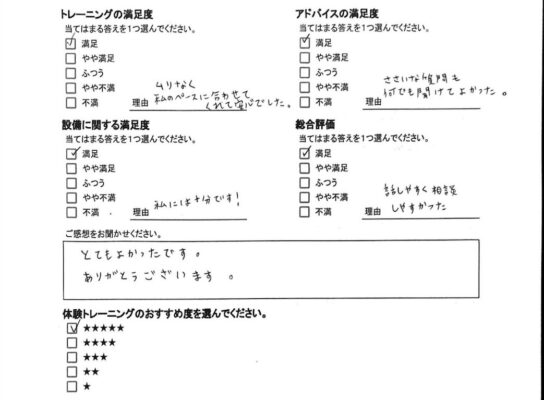 トレーニングの満足度
当てはまる答えを1つ選んでください。
満足
やや満足
ふつう
やや不満
不満
理由
ムリなく
私のペースに合わせて
くれて安心でした。
アドバイスの満足度
当てはまる答えを1つ選んでください。
満足
やや満足
ふつう
やや不満
不満
理由
ささいな質問も
何でも聞けてよかった。
設備に関する満足度
当てはまる答えを1つ選んでください。
満足
やや満足
ふつう
やや不満
不満
理由
私には十分です!
総合評価
当てはまる答えを1つ選んでください。
満足
やや満足
ふつう
やや不満
不満
理由
話しやすく相談
しやすかった
ご感想をお聞かせください。
とてもよかったです。
ありがとうございます。
体験トレーニングのおすすめ度を選んでください。
★★★★★
★★★★
★★★
★★
★